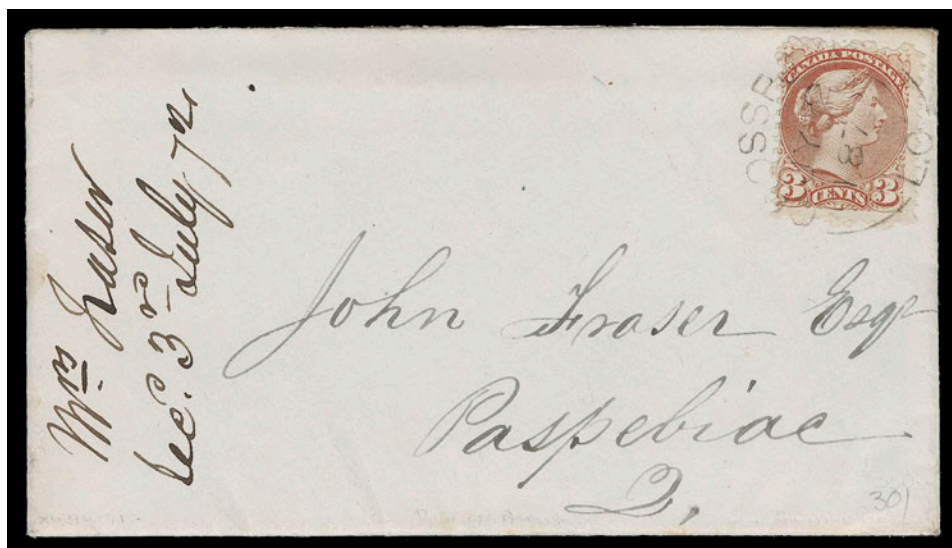 Mrs Fraser
rec. 3rd July 72
CANADA POSTAGE
3 CENTS 3
John Fraser Esqr
Paspebiac
Q,
301